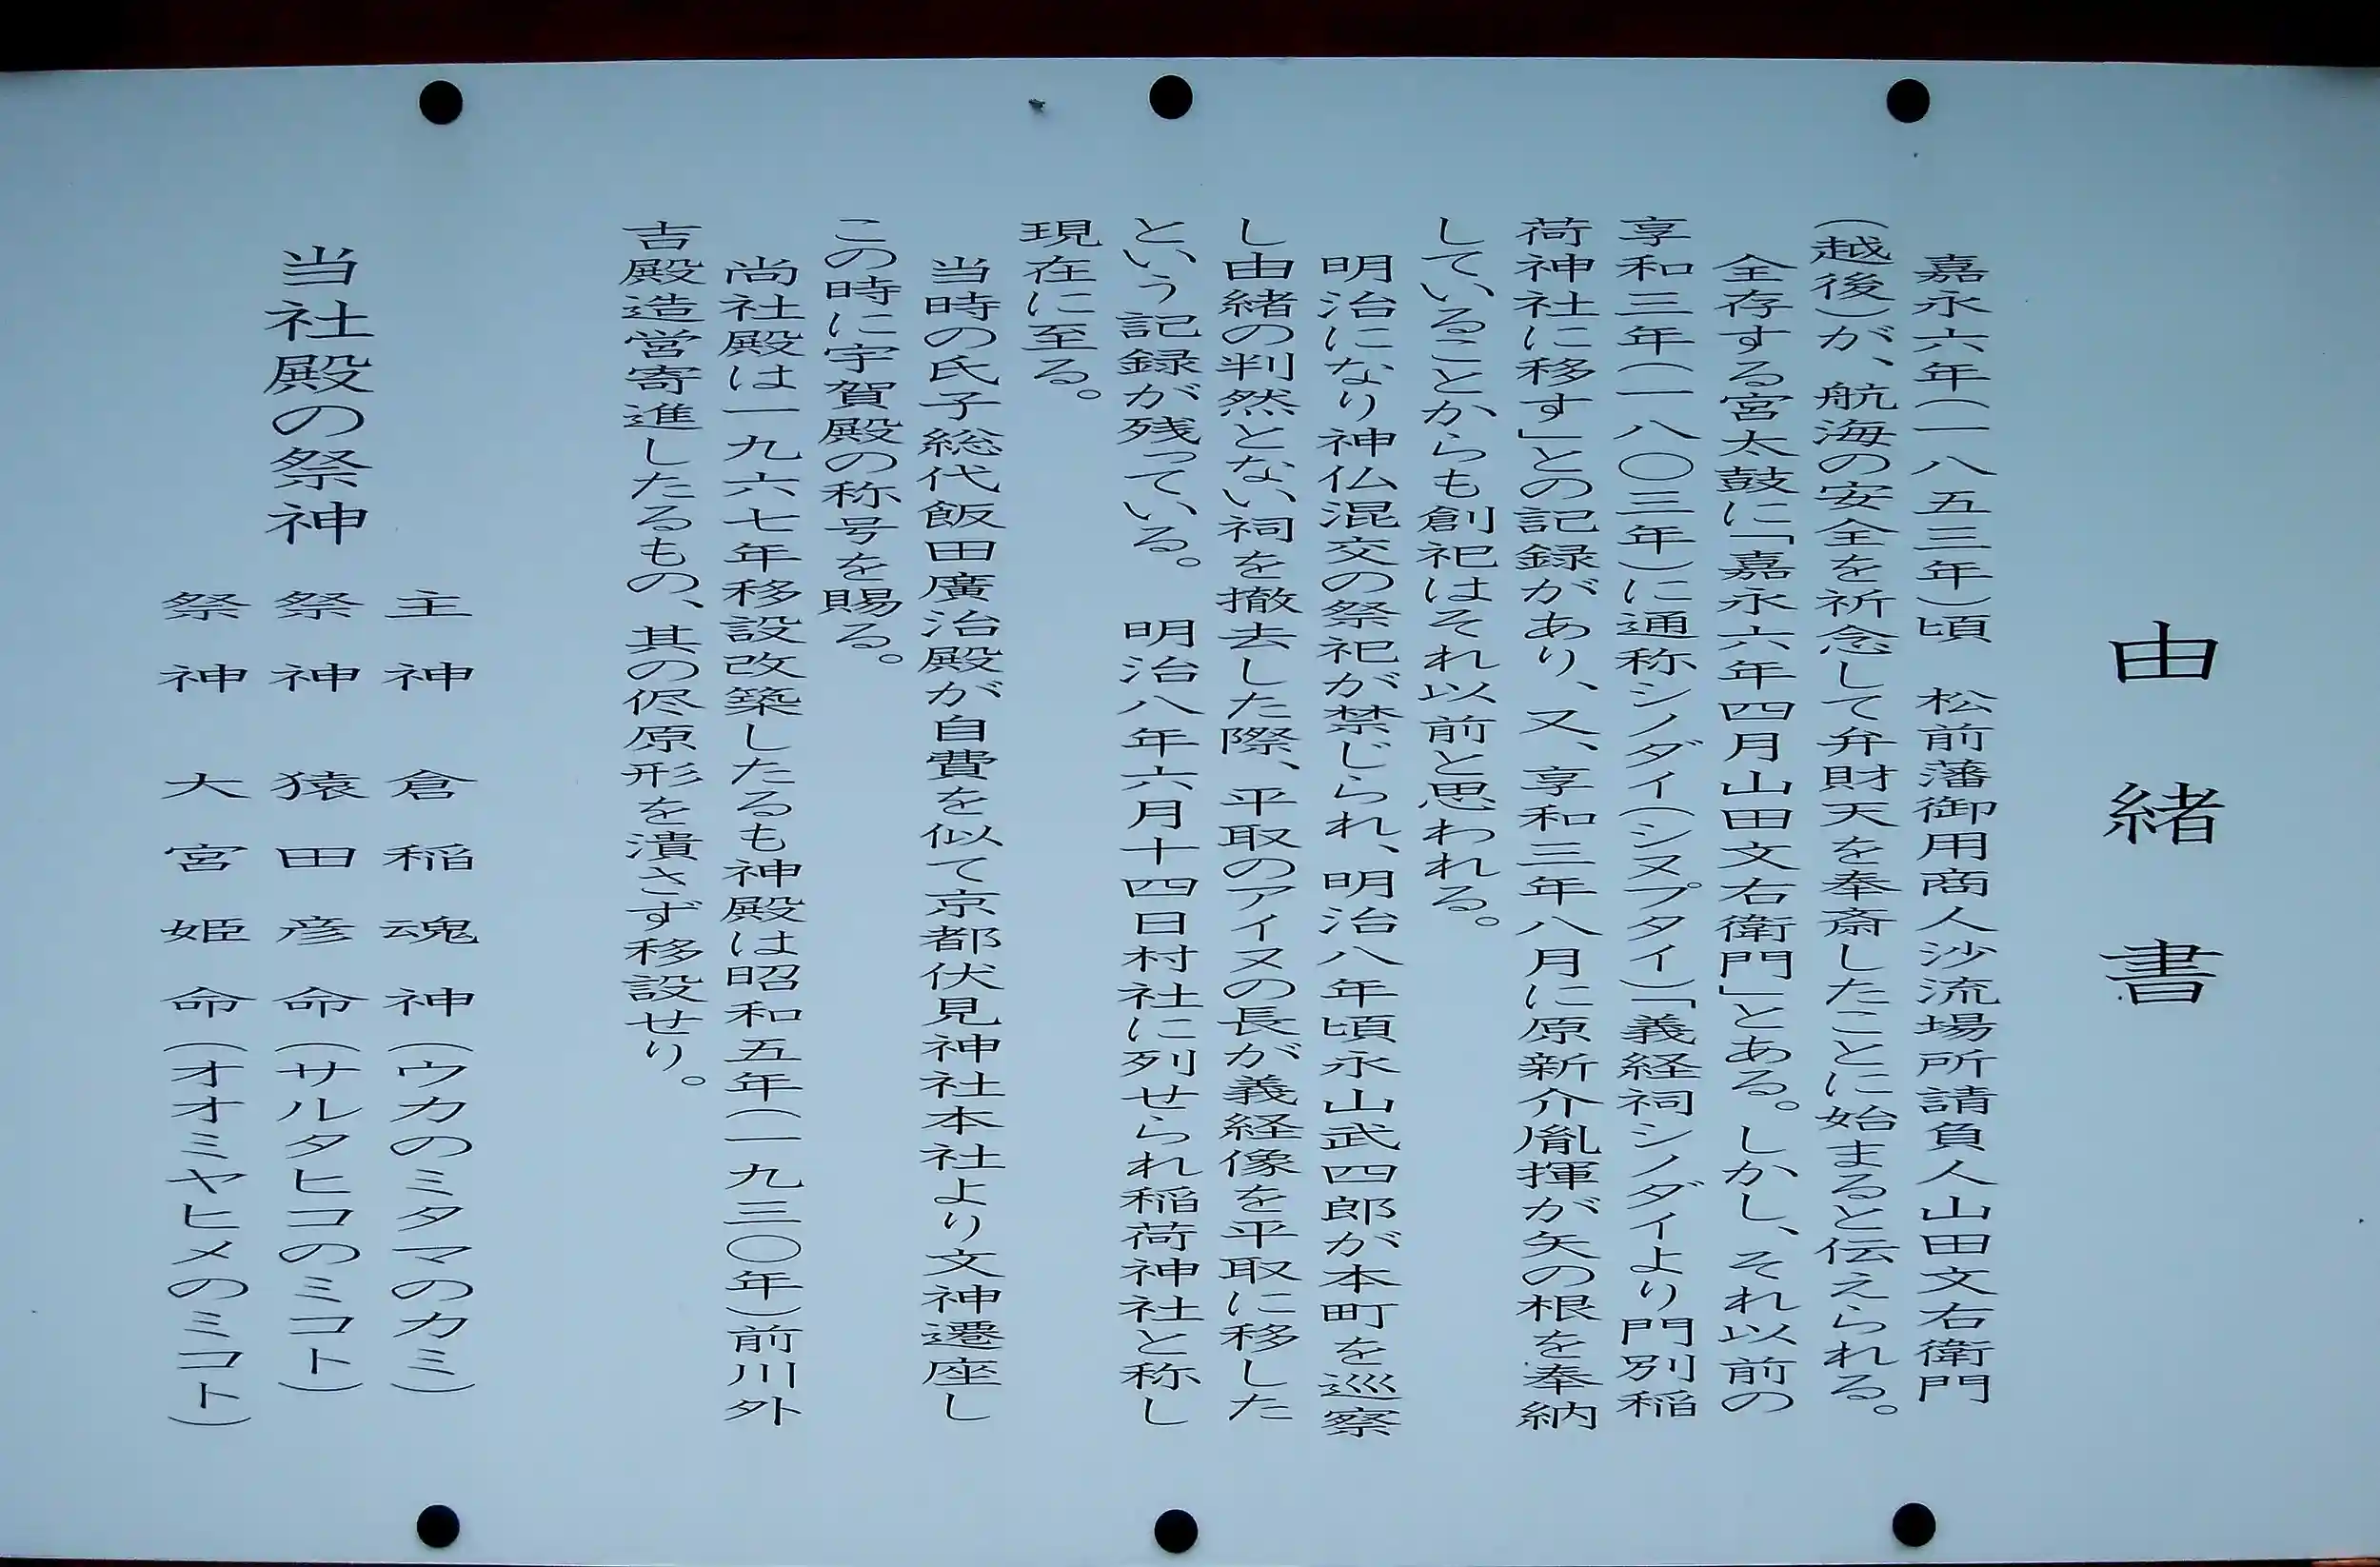 由緒書
嘉永六年(一八五三年)頃　松前藩御用商人沙流場所請負人山田文右衛門
(越後)が、航海の安全を祈念して弁財天を奉斎したことに始まると伝えられる。
全存する宮太鼓に「嘉永六年四月山田文右衛門」とある。しかし、それ以前の
享和三年(一八〇三年)に通称シノダイ(シヌプタイ)「義経祠シノダイより門別稲
荷神社に移す」との記録があり、又、享和三年八月に原新介胤揮が矢の根を奉納
していることからも創祀はそれ以前と思われる。
明治になり神仏混交の祭祀が禁じられ、明治八年頃永山武四郎が本町を巡察
し由緒の判然とない祠を撤去した際、平取のアイヌの長が義経像を平取に移した
という記録が残っている。　明治八年六月十四日村社に列せられ稲荷神社と称し
現在に至る。
当時の氏子総代飯田廣治殿が自費を似て京都伏見神社本社より文神遷座し
この時に宇賀殿の称号を賜る。
尚社殿は一九六七年移設改築したるも神殿は昭和五年(一九三〇年)前川外
吉殿造営寄進したるもの、其の侭原形を潰さず移設せり。
当社殿の祭神
主神　倉稲魂神(ウカのミタマのカミ)
祭神　猿田彦命(サルタヒコのミコト)
祭神　大宮姫命(オオミヤヒメのミコト)